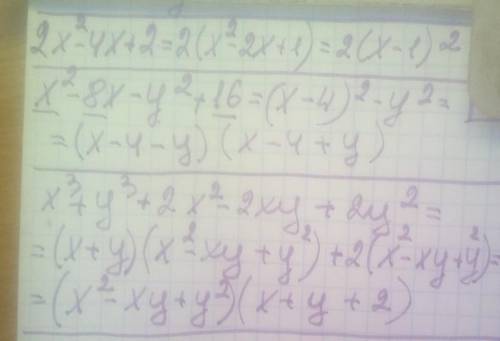 2x²-4x+2=2(x²-2x+1)=2(x-1)²
x²-8x-y²+16=(x-4)²-y²=
=(x-4-y)(x-4+y)
x³+y³+2x²-2xy+2y²=
=(x+y)(x²-xy+y²)+2(x²-xy+y²)=
=(x²-xy+y²)(x+y+2)